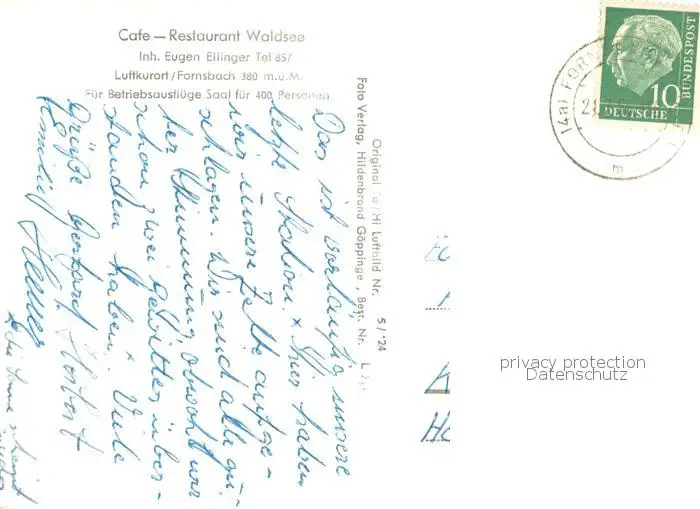 Cafe — Restaurant Waldsee
Inh. Eugen Ellinger Tel 857
Luftkurort/Fornsbach 380 m.ü.M.
Für Betriebsausflüge Saal für 400 Personen
Original
Luftbild Nr. 5/ 24
Foto Verlag, Hildenbrand Göppinge , Best. Nr. L
Das ist vorläufig unsere
letzte Station. Hier haben
wir unsere Zelte aufge-
schlagen. Wir sind alle gu-
ter Stimmung obwohl wir
schon zwei Gewitter über-
standen haben. Viele
Grüße
Herbert
Familie
(14a) FORN
10
DEUTSCHE
BUNDESPOST
m
privacy protection
Datenschutz